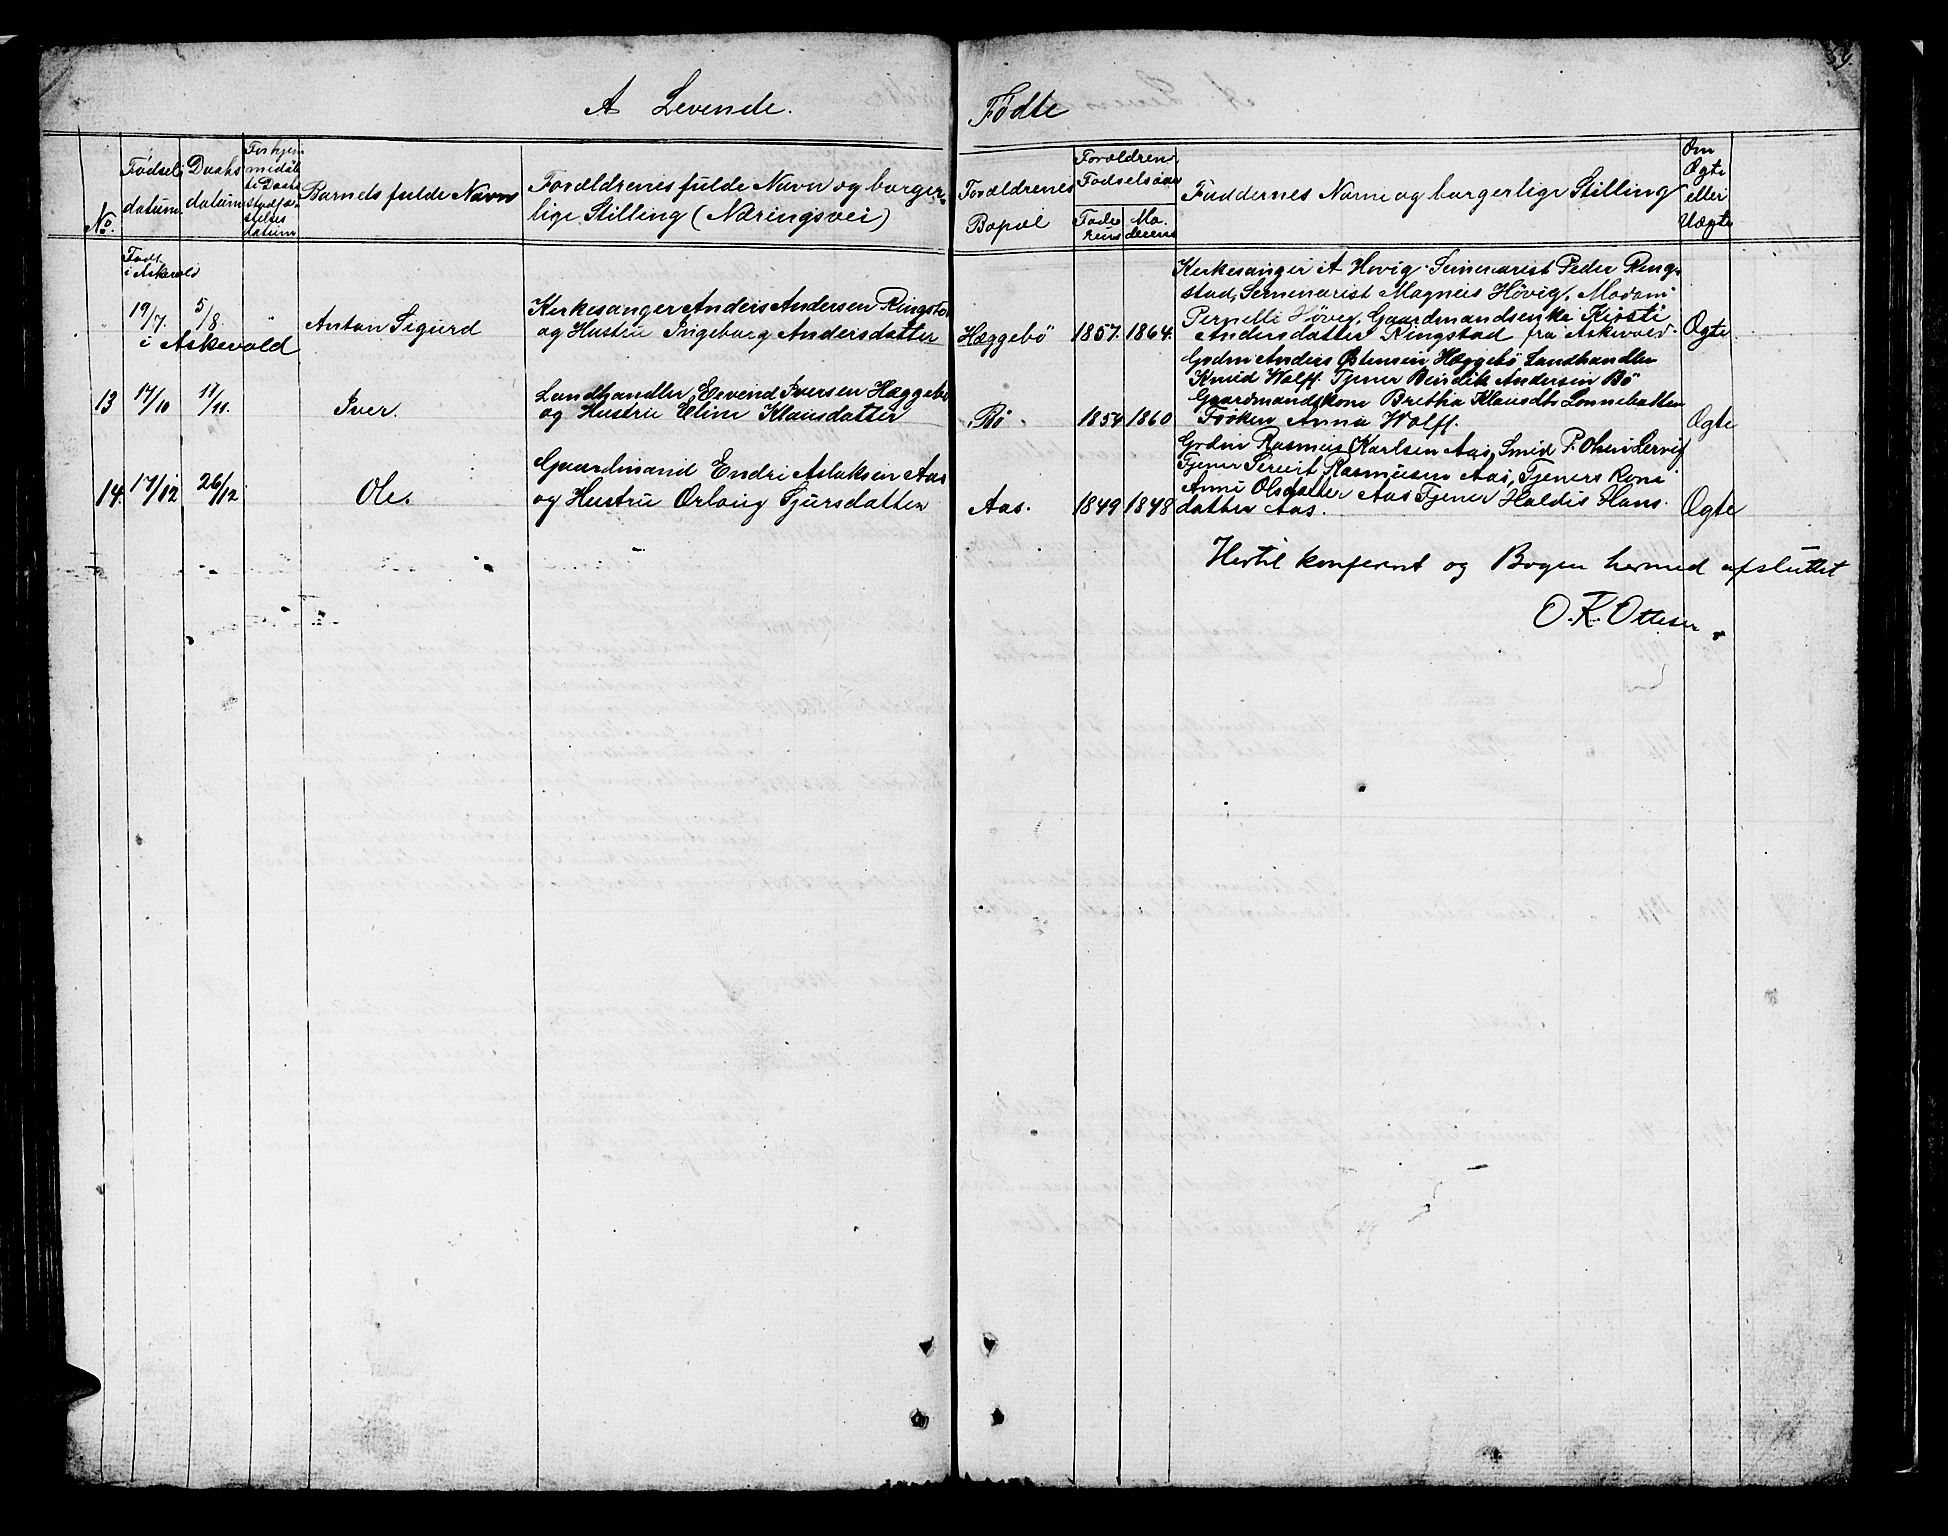 59.
A Levende. Fødte
No.
Fødsels datum.
Daabs datum
For hjemmedøbte Daabs stadfæstelses datum
Barnets fulde Navn
Forældrenes fulde Navn og borgerlige Stilling (Næringsvei)
Forældrenes Bopæl
Forældrenes Fødselsaar
Faderens
Moderens
Faddernes Navne og borgerlige Stilling
Om Ægte eller Uægte
Født i Askevold
" 19/7. 5/8. " Anton Sigurd
i Askevold
Kirkesanger Anders Andersen Ringstad
og Hustru Ingeborg Andersdatter
Hæggebö 1857. 1864.
Kirkesanger A Hovig Seminarist Peder Ring-
stad, Seminarist Magnus Hövig, Madam
Pernelle Höveg, Gaardmandsenke Kirsti
Andersdatter Ringstad fra Askevold.
Ægte
13 17/10 17/11. Iver.
Landhandler Eevend Iversen Hæggebö
og Hustru Eline Klausdatter
Bö 1854 1860
Grdm Anders Østensen Hæggebö Landhandler
Knud Wolff. Tjener Bendik Andersen Bö
Gaardmandskone Bretha Klausdtr Lonnebatten
Fröken Anna Wolff.
Ægte
14. 17/12 26/12 Ole.
Gaardmand Endre Aslaksen Aas
og Hustru Orlaug Sjursdatter
Aas. 1849 1848
Grdm Rasmus Karlsen Aas, Smid P. Olsen Lervig
Tjener Sevrit Rasmusen Aas, Tjeners Kone
Anne Olsdatter Aas Tjener Haldis Hans-
datter Aas.
Ægte
Hertil konferert og Bogen hermed afsluttet
O. K. Ottesen.